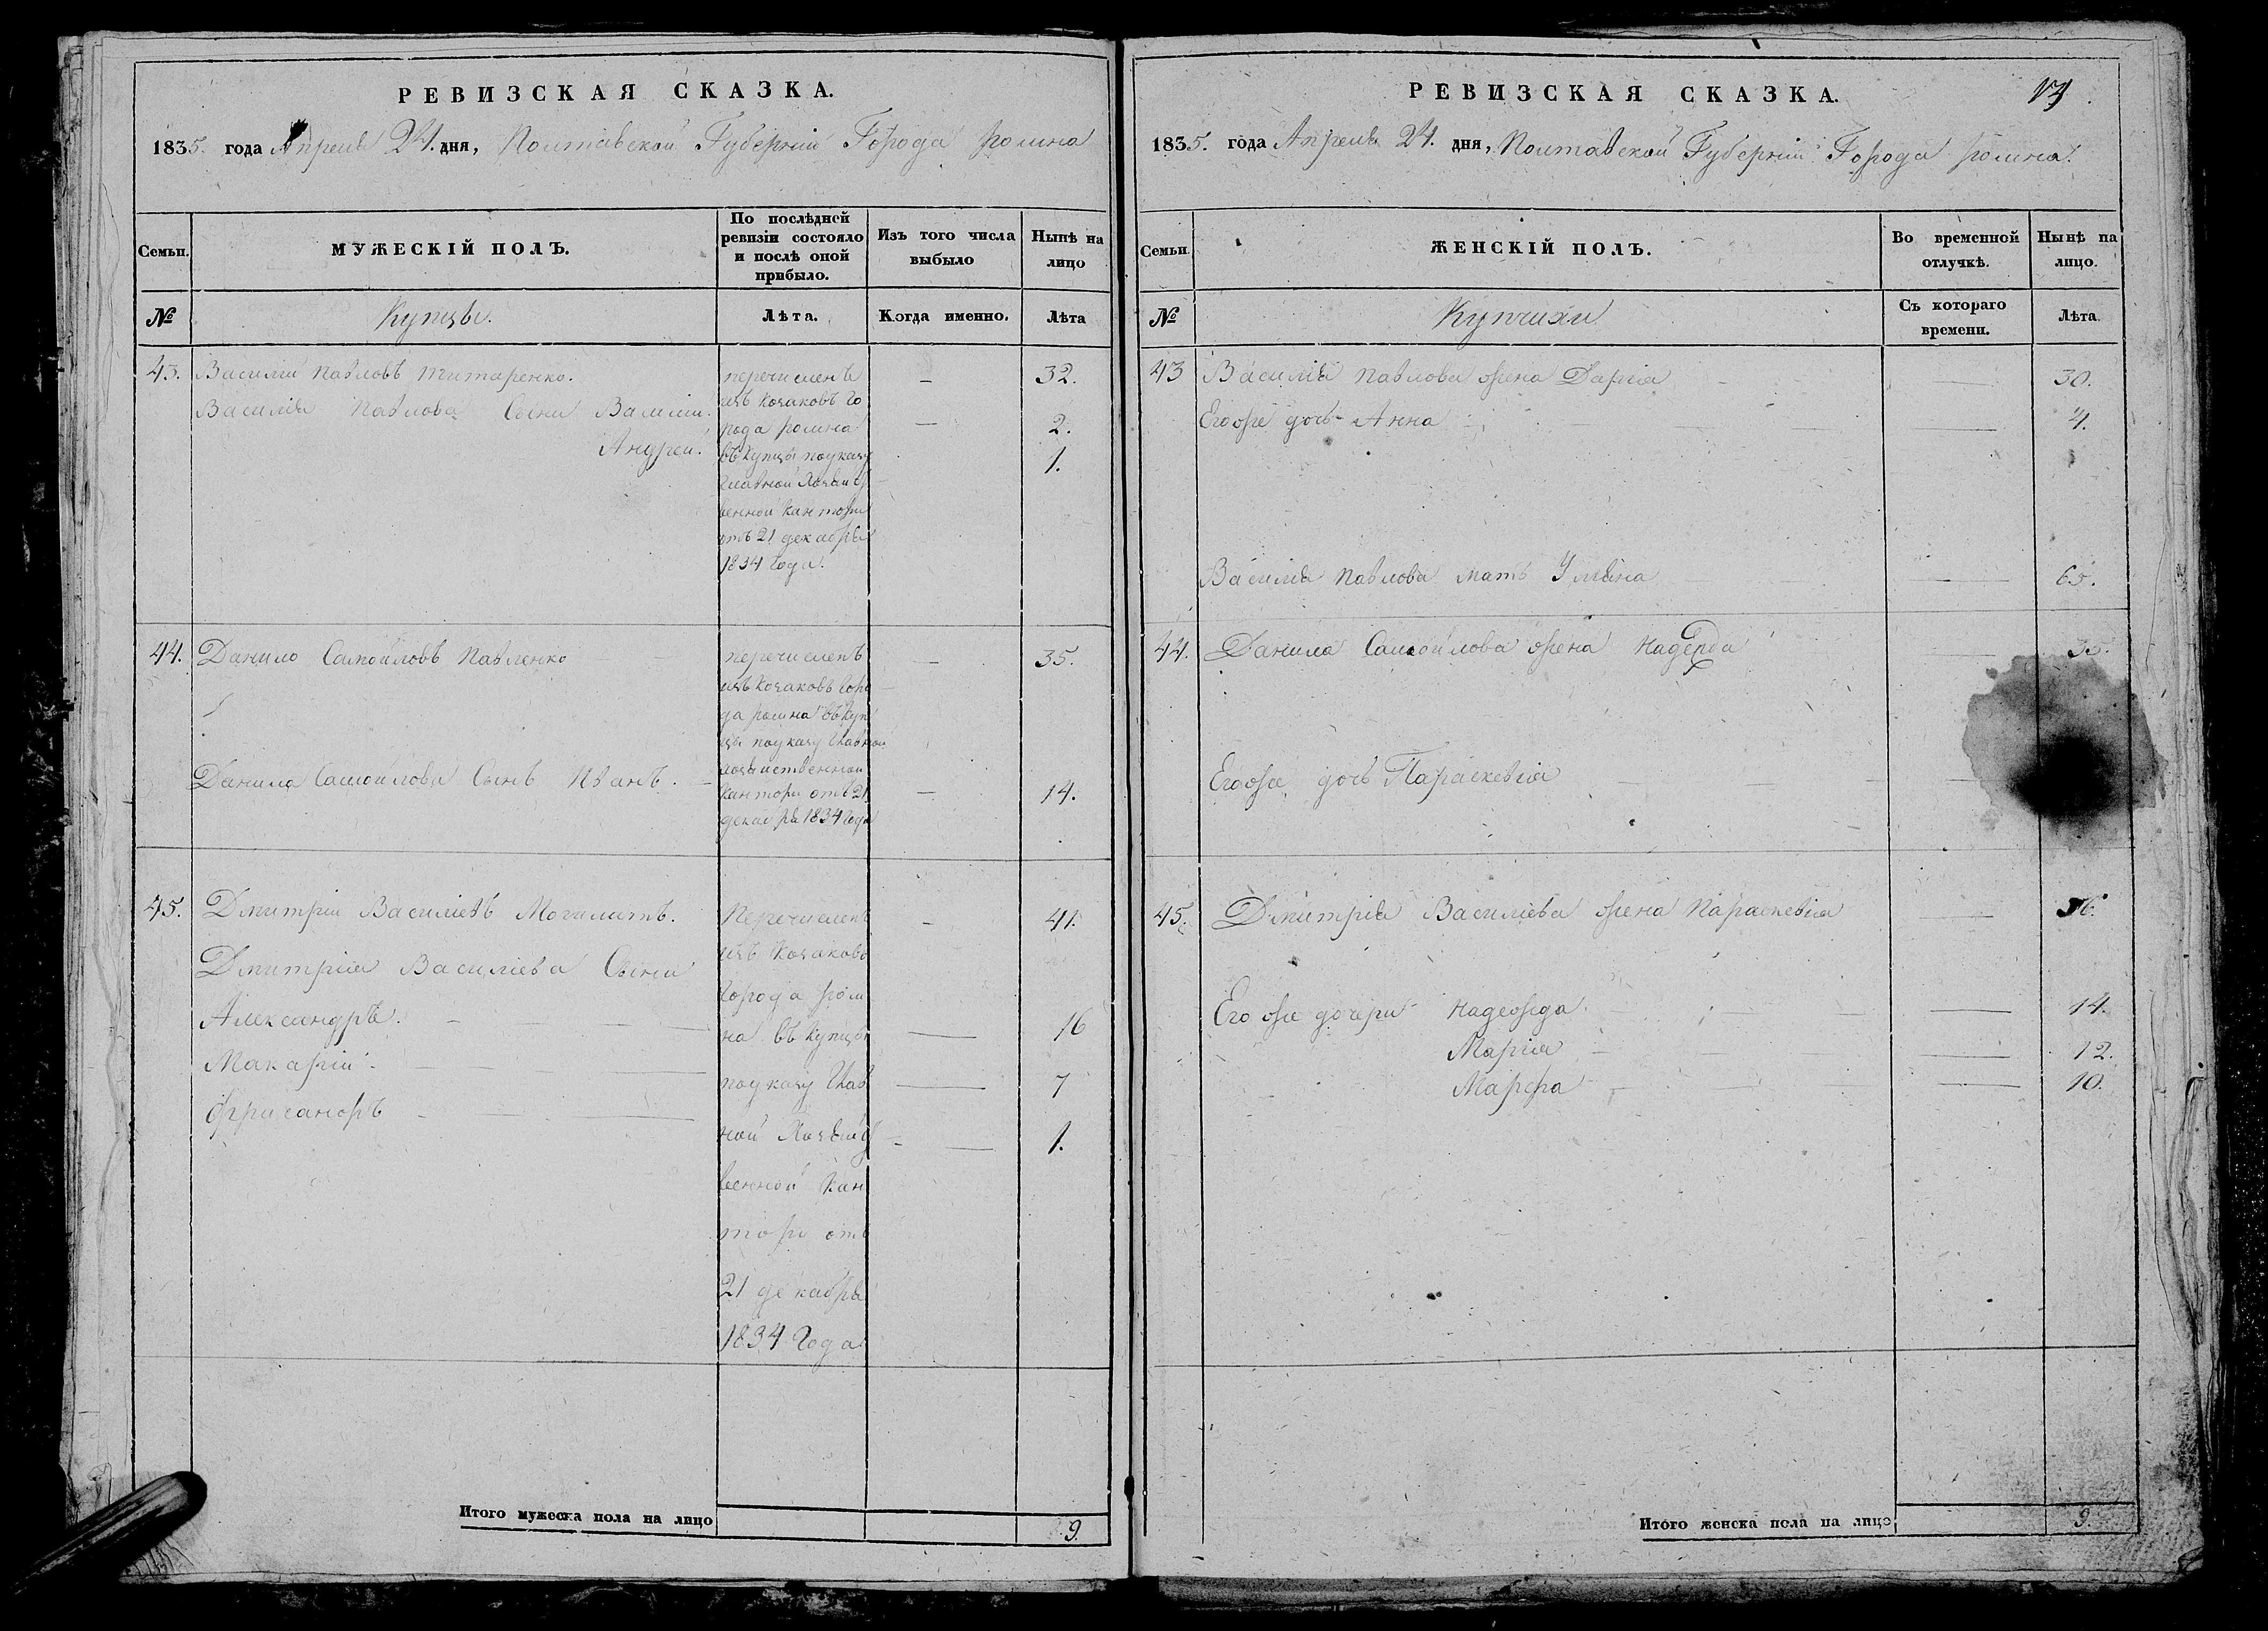 РЕВИЗСКАЯ СКАЗКА.
1835. года Апреля 24. дня, Полтавской Губерніи Города Ромна
Семьи.
МУЖЕСКІЙ ПОЛЪ.
По послѣдней ревизіи состояло и послѣ оной прибыло.
Изъ того числа выбыло
Нынѣ на лицо
№
Купцы.
Лѣта.
Когда именно.
Лѣта
43. Василий Павловъ Титаренко. — 32.
Василія Павлова Сыни Василій. — 2.
Андрей. 1.
перечисленъ
изъ козаковъ го
рода ромна
въ купцы поуказу
главной Хозяйс
венной кантори
отъ 21 декабря
1834 года.
44. Данило Самойловъ Павленко — 35.
Данила Самойлова Сынъ Иванъ. — 14.
перечисленъ
изъ козаковъ горо
да ромна въ куп
цы поуказу главной
хозяйственной
кантори отъ 21
декабря 1834 года
45. Дмитрій Василіевъ Могилатъ. — 41.
Дмитрія Василіева Сыни
Александръ. — 16
Макарій. — 7
— 1.
Перечисленъ
изъ козаковъ
города ром
на въ купцы
поуказу глав
ной Хозяйс
венной кан
тори отъ
21 декабря
1834 года
Итого мужеска пола на лицо 9.
РЕВИЗСКАЯ СКАЗКА.
1835. года Апреля 24. дня, Полтавской Губерніи Города Ромна.
Семьи.
ЖЕНСКІЙ ПОЛЪ.
Во временной отлучкѣ.
Нынѣ на лицо.
№
Купчихи
Съ котораго времени.
Лѣта.
43 Василія Павлова жена Дарія — 30.
Егоже дочь Анна — 4.
Василія Павлова мать Уляна — 65.
44. Данила Самойлова жена
Егоже дочь Параскевія
45. Дмитрія Василіева жена Параскевія —
Его же дочери Надежда — 14.
Марія — 12.
Марфа — 10.
Итого женска пола на лицо 9.